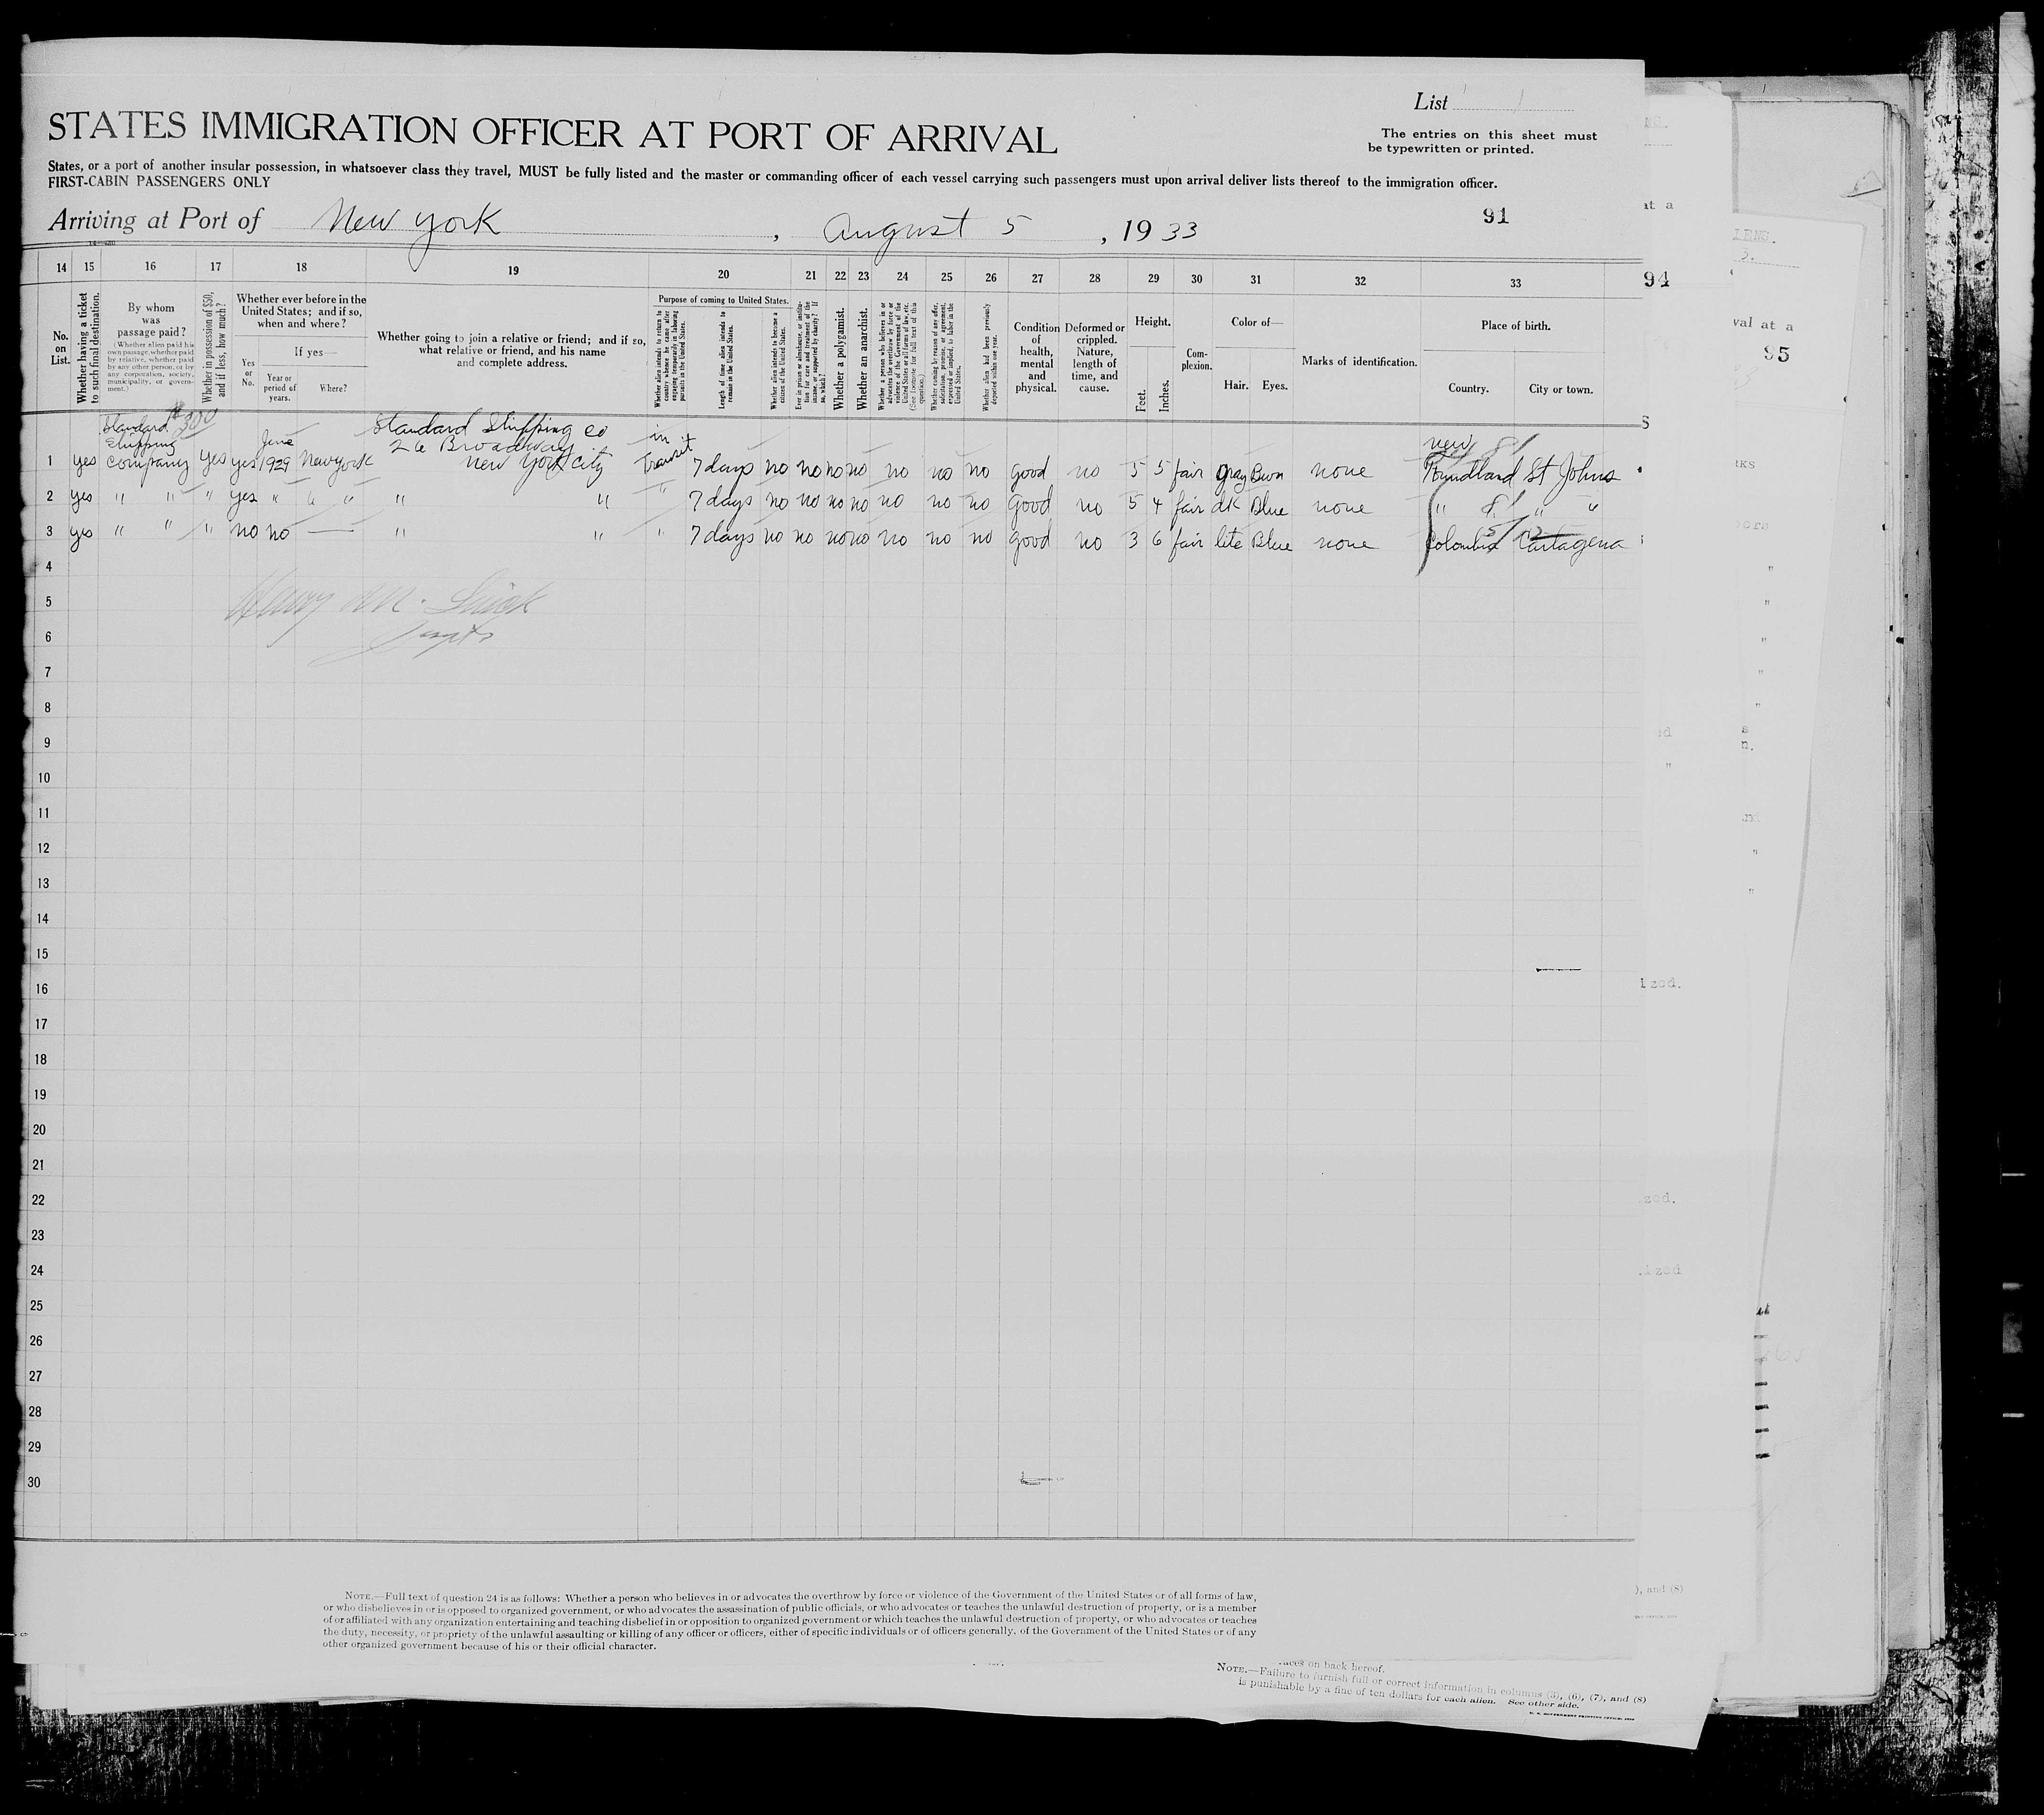 List 1
STATES IMMIGRATION OFFICER AT PORT OF ARRIVAL
The entries on this sheet must
be typewritten or printed.
States, or a port of another insular possession, in whatsoever class they travel, MUST be fully listed and the master or commanding officer of each vessel carrying such passengers must upon arrival deliver lists thereof to the immigration officer.
FIRST-CABIN PASSENGERS ONLY
91
Arriving at Port of New York, August 5, 1933
14 15 16 17 18 19 20 21 22 23 24 25 26 27 28 29 30 31 32 33
No. on List.
Whether having a ticket to such final destination.
By whom was passage paid?
(Whether alien paid his own passage, whether paid by relative, whether paid by any other person, or by any corporation, society, municipality, or government.)
Whether in possession of $50, and if less, how much?
Whether ever before in the United States; and if so, when and where?
Yes or No.
If yes—
Year or period of years.
Where?
Whether going to join a relative or friend; and if so, what relative or friend, and his name and complete address.
Purpose of coming to United States.
Whether alien intends to return to country whence he came after engaging temporarily in laboring pursuits in the United States.
Length of time alien intends to remain in the United States.
Whether alien intends to become a citizen of the United States.
Ever in prison or almshouse, or institution for care and treatment of the insane, or supported by charity? If so, which?
Whether a polygamist.
Whether an anarchist.
Whether a person who believes in or advocates the overthrow by force or violence of the Government of the United States or all forms of law, etc. (See footnote for full text of this question.)
Whether coming by reason of any offer, solicitation, promise, or agreement, expressed or implied, to labor in the United States.
Whether alien had been previously deported within one year.
Condition of health, mental and physical.
Deformed or crippled. Nature, length of time, and cause.
Height.
Feet. Inches.
Complexion.
Color of—
Hair. Eyes.
Marks of identification.
Place of birth.
Country. City or town.
$300
1 yes Standard Shipping Company yes yes June 1929 New York Standard Shipping Co 26 Broadway New York City in transit 7 days no no no no no no no good no 5 5 fair gray Brwn none New Foundland St Johns
81
2 yes " " " yes " " " " " " 7 days no no no no no no no good no 5 4 fair dk Blue none " " "
81
3 yes " " " no no — " " " 7 days no no no no no no no good no 3 6 fair lite Blue none Colombia Cartagena
4
5
6
7
8
9
10
11
12
13
14
15
16
17
18
19
20
21
22
23
24
25
26
27
28
29
30
NOTE.—Full text of question 24 is as follows: Whether a person who believes in or advocates the overthrow by force or violence of the Government of the United States or of all forms of law,
or who disbelieves in or is opposed to organized government, or who advocates the assassination of public officials, or who advocates or teaches the unlawful destruction of property, or is a member
of or affiliated with any organization entertaining and teaching disbelief in or opposition to organized government or which teaches the unlawful destruction of property, or who advocates or teaches
the duty, necessity, or propriety of the unlawful assaulting or killing of any officer or officers, either of specific individuals or of officers generally, of the Government of the United States or of any
other organized government because of his or their official character.
94
val at a
95
ized.
zed.
ized
), and (8)
on back hereof.
NOTE.—Failure to furnish full or correct information in columns (3), (6), (7), and (8)
is punishable by a fine of ten dollars for each alien. See other side.
U. S. GOVERNMENT PRINTING OFFICE